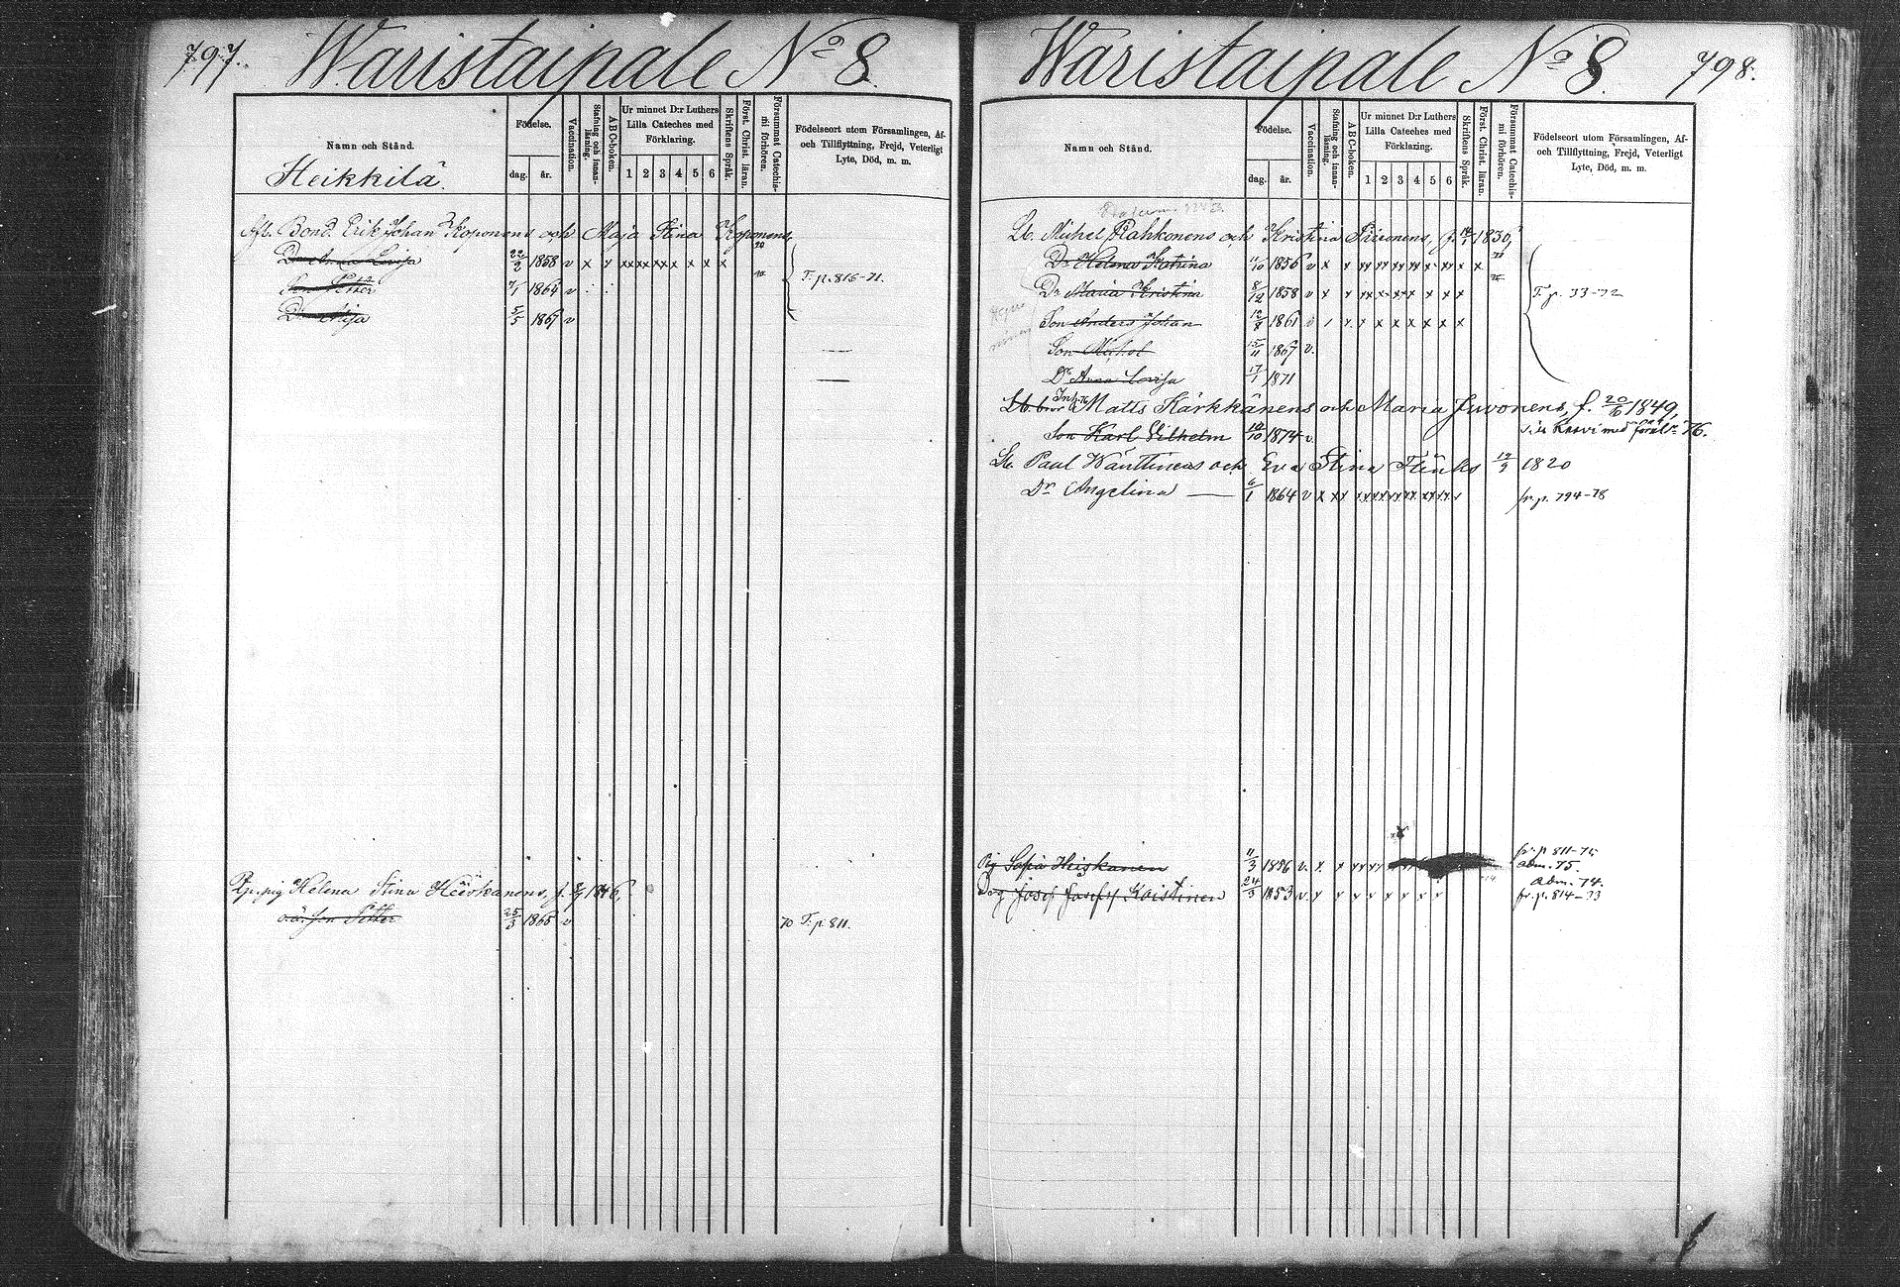 797.
Waristaipale No 8.
Namn och Stånd.
Födelse.
dag.
år.
Vaccination.
Stafning och innanläsning.
ABC-boken.
Ur minnet D:r Luthers
Lilla Cateches med
Förklaring.
1 2 3 4 5 6
Skriftens Språk.
Först. Christ. läran.
Försummat Catechismi förhören.
Födelseort utom Församlingen, Af-
och Tillflyttning, Frejd, Veterligt
Lyte, Död, m. m.
Heikkilä.
Afl. Bond. Erik Johan Koponens och Maja Stina Koponens,
Lovisa 22/2 1858 v x
Son Petter 1864 v T. p. 816-71.
Dr Maja 5/5 1867 v
Helena Stina 1846,
oä. son Petter 25/3 1865 v 70 T. p 811.
798.
Waristaipale No 8.
Namn och Stånd.
Födelse.
dag.
år.
Vaccination.
Stafning och innanläsning.
ABC-boken.
Ur minnet D:r Luthers
Lilla Cateches med
Förklaring.
1 2 3 4 5 6
Skriftens Språk.
Först. Christ. läran.
Försummat Catechismi förhören.
Födelseort utom Församlingen, Af-
och Tillflyttning, Frejd, Veterligt
Lyte, Död, m. m.
Lb. Michel Pahkonens och Kristina f. 1830,
Dr Helena Katrina 11/10 1856 v x
Dr Maria Kristina 8/12 1858 v x T. p. 33-72
Son Anders Johan 12/8 1861
Son Michel 15/11 1867 v.
Dr Anna Lovisa 17/1 1871
Inh. Matts Kärkkänens och Maria Juvonens, f. 20/6 1849,
Son Karl Vilhelm 10/10 1874 v. 76.
Lb. Paul Wänttinens och Eva Stina 12/9 1820
Dr Angelina 6/1 1864 v x fr. p. 794-78
Pig Sofia Heiskanen 11/3 1856 v. x fr. p. 811-75
adm. 75.
Adm. 74.
Drg Josef Josefs. Koistinen 24/3 1853 v. x fr. p. 814-73